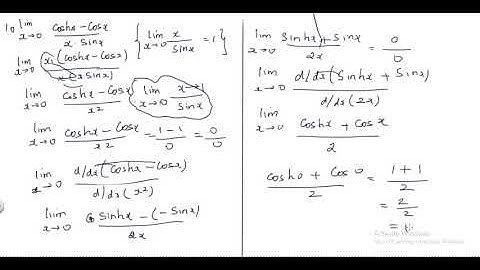 1. lim x→0 coshx - cosx / x sinx { lim x→0 x/sinx = 1 }
lim x→0 x(coshx - cosx) / x·x sinx
lim x→0 coshx - cosx / x² lim x→0 x / sinx
lim x→0 coshx - cosx / x² = 1-1 / 0 = 0/0
lim x→0 d/dx (coshx - cosx) / d/dx (x²)
lim x→0 sinhx - (-sinx) / 2x
lim x→0 sinhx + sinx / 2x = 0/0
lim x→0 d/dx (sinhx + sinx) / d/dx (2x)
lim x→0 coshx + cosx / 2
cosh0 + cos0 / 2 = 1+1 / 2
= 2/2
Activate Windows